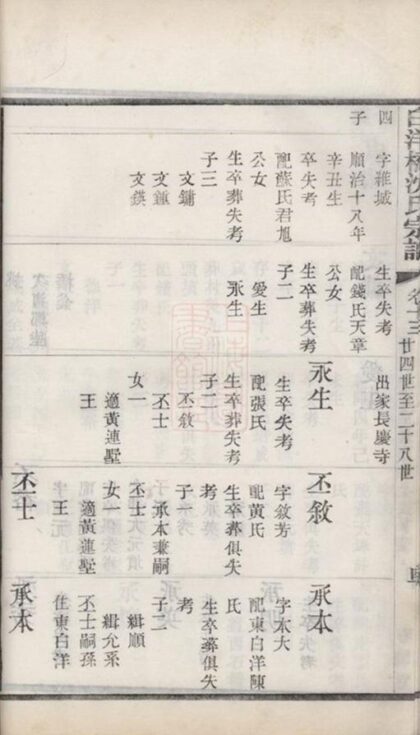 卷十三 廿四世至二十八世
四子
字雒城
順治十八年
辛丑生
卒失考
配蘇氏君旭
公女
生卒葬失考
子三
文鏞
文鍾
文鍈
生卒失考
配錢氏天章
公女
生卒葬失考
子二
愛生
永生
出家長慶寺
永生
生卒失考
配張氏
生卒葬失考
子二
丕敘
丕士
女一
適黃連墅
王
丕敘
字敘芳
配黃氏
生卒葬俱失
考
子
承本兼嗣
丕士
女一
適黃連墅
王
丕士
承本
字本大
配東白洋陳
氏
生卒葬俱失
考
子二
緝順
緝允系
丕士嗣孫
住東白洋
承本